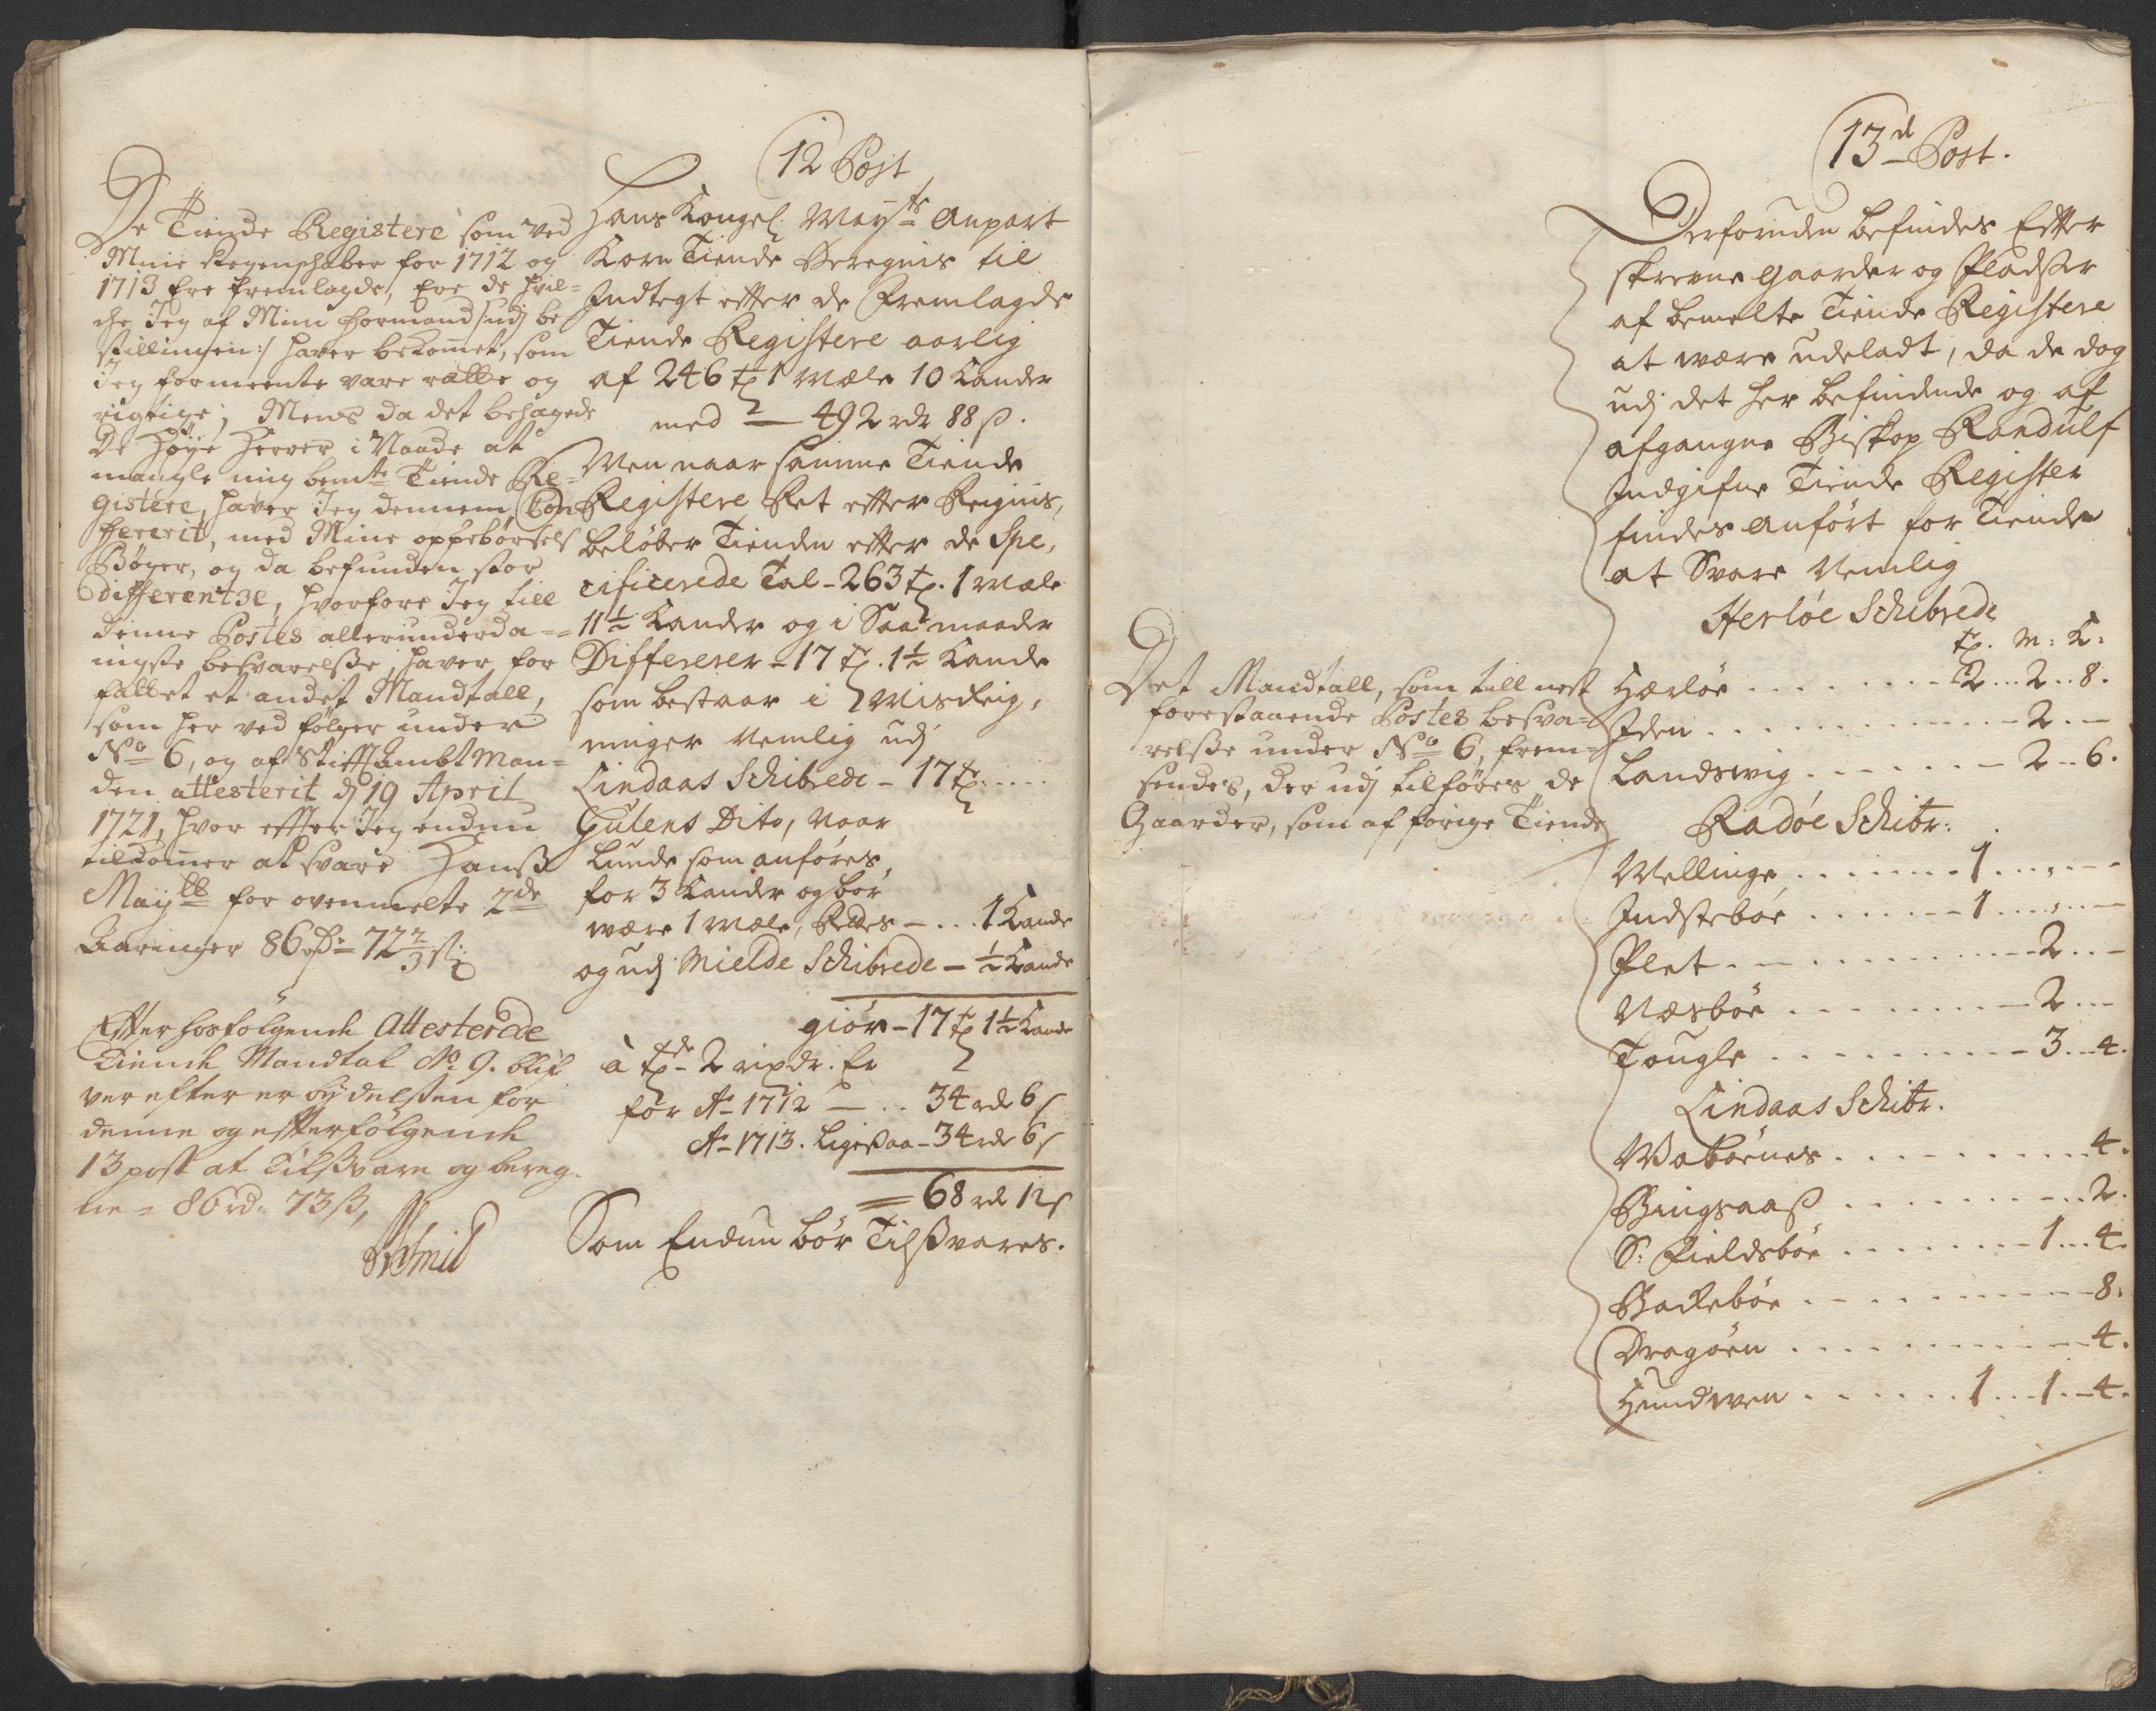 De Tiende Registere som ved
Mine Regenschaber for 1712 og
1713 Ere fremlagde, Ere de hvil=
che Jeg af Mine Formand /:udj be
stillingen:/ haver bekommet, som
Jeg formeente vare rætte og
rigtige; Mens da det behagede
De Høye Herrer i Naade at
mangle mig bemte Tiende Re=
gistere, haver Jeg dennem Con
fererit, med Mine oppebørsels
Bøger, og da befunden stor
differentze, hvorfore Jeg till
denne Postes allerunderda=
nigste besvarelsse, haver for
fattet et andet Mandtall,
som her ved følger under
No 6, og af Stifftambtman=
den attesterit d 19 April
1721, hvor effter Jeg endnu
tilkommer at svare Hanss
Mayts for ovenmelte 2de
Aaringer 86 rdr 72 2/3 s
Effter hosfølgende Attesterede
Tiende Mandtal No 9. blif
ver efter erbydelsen for
denne og efterfølgende
13 post at Tilssvare og bereg
ne = 86 rdr 73 ss,
Schmid
12 Post
Hans Kongel Mayts Anpart
Korn Tiende Beregnis til
Indtegt effter de Fremlagde
Tiende Registere aarlig
af 246 tr 1 Mæle 10 Kander
med — 492 rdr 88 ss.
Men naar samme Tiende
Registere Ret effter Regnis,
beløber Tienden effter de Spe,
cificerede Tal - 263 tr. 1 Mæle
11 1/2 Kander og i Saa maader
Differerer - 17 tr. 1 1/2 Kande
som bestaar i Misreig,
ninger Nemlig udj
Lindaas Schibrede - 17 tr
Gulens Dito, Naar
Lunde som anføres,
for 3 Kander og bør
være 1 Mæle, Rettes - . . . 1 Kande
og udj Mielde Schibrede - 1/2 Kande
giør - 17 tr 1 1/2 Kande
à trde 2 rixdr. Er
for Ao 1712 — . . 34 rdr 6 s
Ao 1713. Ligessaa - 34 rdr 6 s
= 68 rdr 12 s
Som Endnu bør Tilssvares.
13d Post.
Derforuden befindes Effter
skrevne Gaarder og Pladsser
af bemelte Tiende Registere
at være udeladt, da de dog
udj det her befindende og af
afgangne Biskop Randulf
Indgifne Tiende Register
findes anført for Tiende
at Svare Nemlig
Det Mandtall, som till nest
forestaaende Postes besva=
relsse under No 6, frem=
sendes, der udj tilføres de
Gaarder, som af forige Tiende
Herløe Schibrede
tr. M: K:
Herløe . . . . . . . . 2 . . 2 . . 8.
Iden . . . . . . . . . . . 2 . . -
Landsvig . . . . . . . . 2 . . 6.
Radøe Schibr:
Mellinge . . . . . . . 1 . . . . . .
Indstebøe . . . . . . 1 . . . . . .
Plet . . . . . . . . . . . 2 . . -
Næsbøe . . . . . . . . . 2 . . -
Tougle . . . . . . . . . 3 . . 4.
Lindaas Schibr.
Wabøenes . . . . . . . . . 4.
Bingsaass . . . . . . . . . 2.
S: Fieldsbøe . . . . . . . 1 . . 4.
Backebøe . . . . . . . . . 8.
Dragøen . . . . . . . . . . 4.
Hundven . . . . . . 1 . . 1 . . 4.